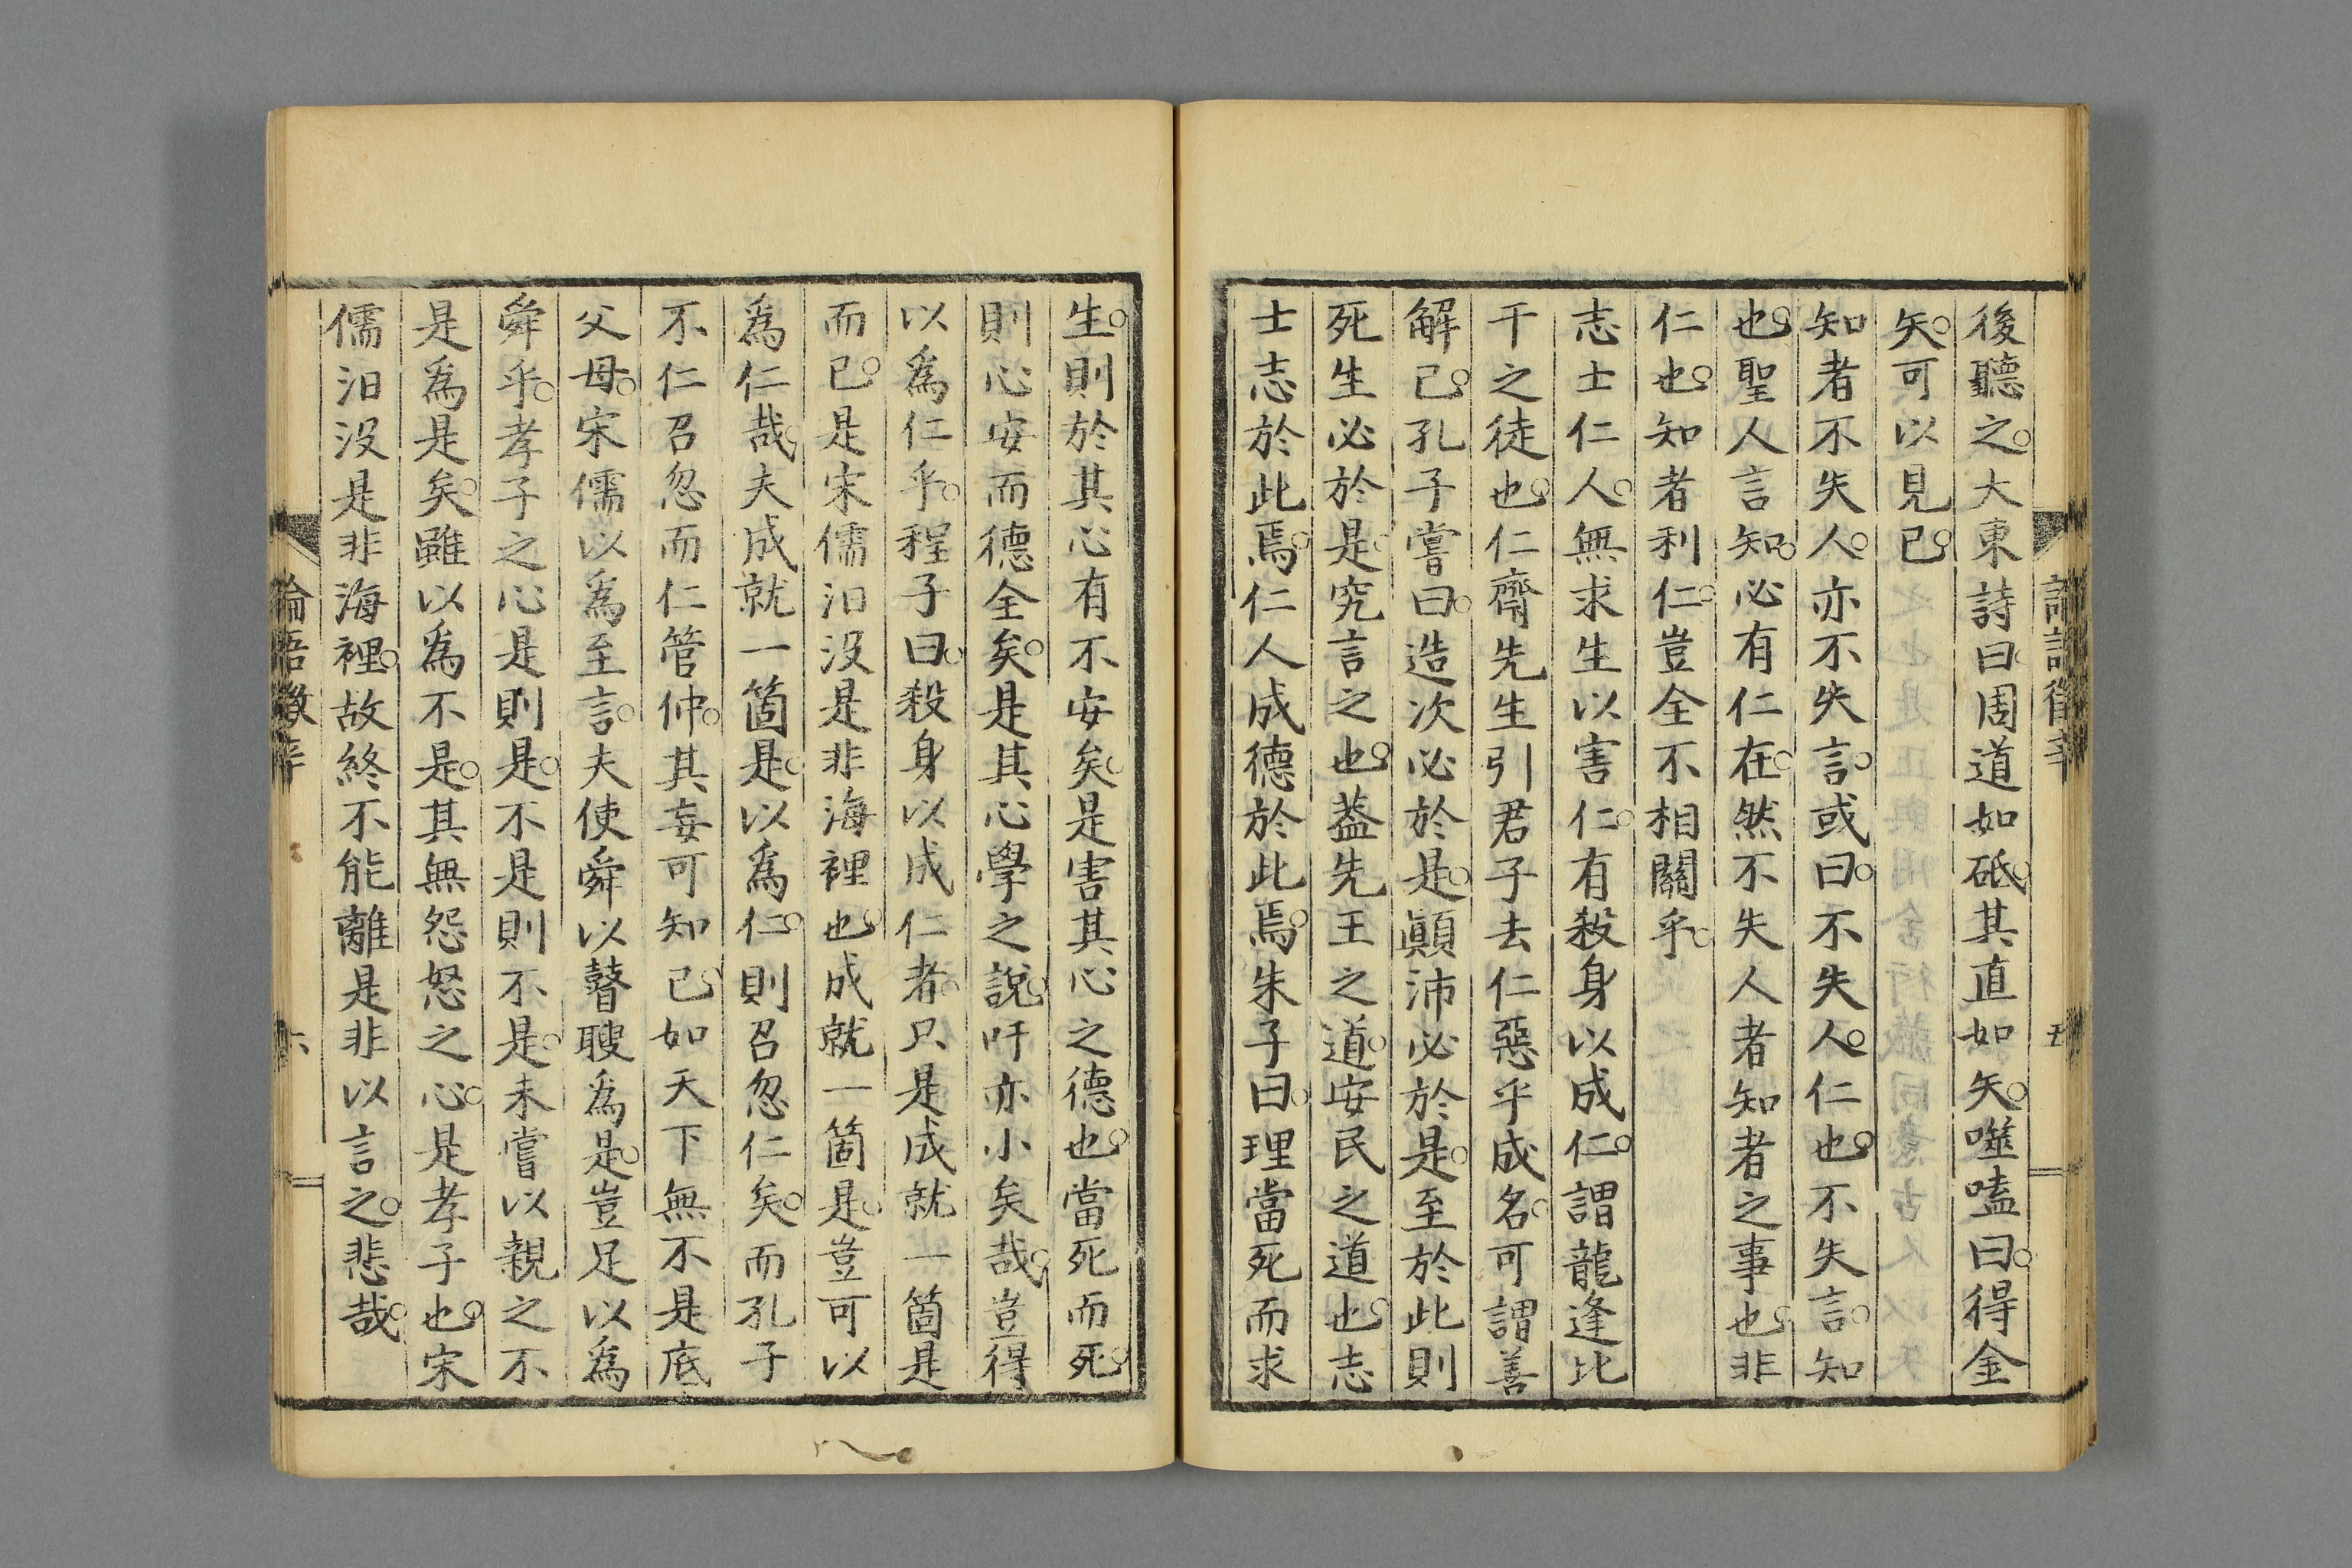 後聽之。大東詩曰。周道如砥。其直如矢。噬嗑曰。得金
矢。可以見已。
知者不失人。亦不失言。或曰。不失人。仁也。不失言。知
也。聖人言知。必有仁在。然不失人者知者之事也。非
仁也。知者利仁。豈全不相關乎。
志士仁人。無求生以害仁。有殺身以成仁。謂龍逢比
干之徒也。仁齋先生引君子去仁惡乎成名。可謂善
解已。孔子嘗曰。造次必於是。顚沛必於是。至於此則
死生必於是。究言之也。葢先王之道。安民之道也。志
士志於此焉。仁人成德於此焉。朱子曰。理當死而求
論語徵辛
五
生。則於其心有不安矣。是害其心之德也。當死而死。
則心安而德全矣。是其心學之說。吁亦小矣哉。豈得
以爲仁乎。程子曰。殺身以成仁者。只是成就一箇是
而已。是宋儒汨没是非海裡也。成就一箇是。豈可以
爲仁哉。夫成就一箇是。以爲仁。則召忽仁矣。而孔子
不仁召忽而仁管仲。其妄可知已。如天下無不是底
父母。宋儒以爲至言。夫使舜以瞽瞍爲是。豈足以爲
舜乎。孝子之心是則是。不是則不是。未嘗以親之不
是爲是矣。雖以爲不是。其無怨怒之心。是孝子也。宋
儒汨没是非海裡。故終不能離是非以言之。悲哉。
論語徵辛
六